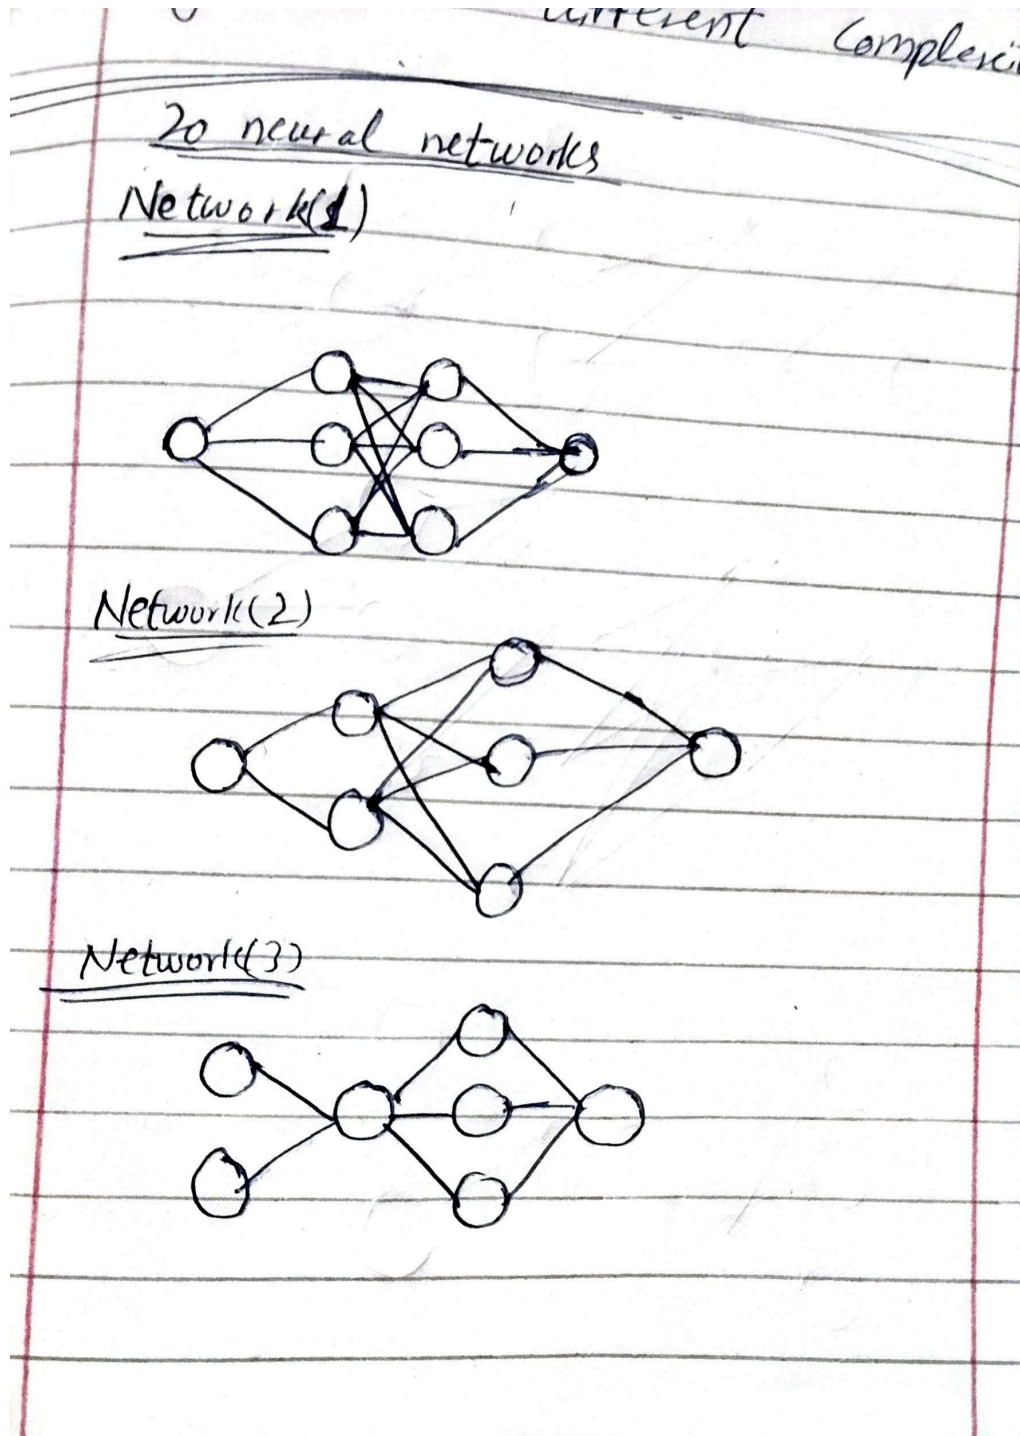 different
20 neural networks
Network(1)
Network(2)
Network(3)